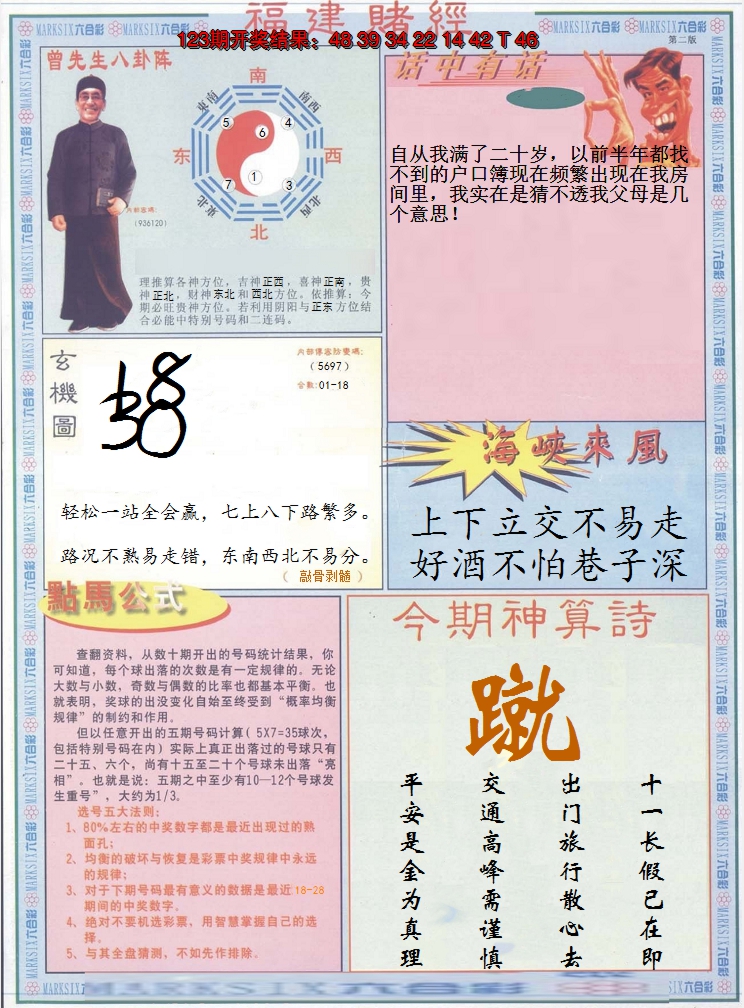 福建賭經
123期开奖结果：48 39 34 22 14 42 T 46
MARKSIX六合彩 MARKSIX六合彩 MARKSIX六合彩
第二版
曾先生八卦陈
南
东南
南西
5
4
6
东
西
1
7
3
東北
西北
北
内部密碼:
(936120)
理推算各神方位，吉神正西，喜神正南，贵
神正北，财神东北和西北方位。依推算：今
期必旺贵神方位。若利用阴阳与正东方位结
合必能中特别号码和二连码。
话中有话
自从我满了二十岁，以前半年都找
不到的户口簿现在频繁出现在我房
间里，我实在是猜不透我父母是几
个意思！
玄機圖
（5697）
合数:01-18
轻松一站全会赢，七上八下路繁多。
路况不熟易走错，东南西北不易分。
（ 敲骨剥髓 ）
海峽來風
上下立交不易走
好酒不怕巷子深
點馬公式
查翻资料，从数十期开出的号码统计结果，你
可知道，每个球出落的次数是有一定规律的。无论
大数与小数，奇数与偶数的比率也都基本平衡。也
就表明，奖球的出没变化自始至终受到“概率均衡
规律”的制约和作用。
但以任意开出的五期号码计算( 5X7=35球次，
包括特别号码在内) 实际上真正出落过的号球只有
二十五、六个，尚有十五至二十个号球未出落“亮
相”。也就是说：五期之中至少有10—12个号球发
生重号”，大约为1/3。
选号五大法则:
1、80%左右的中奖数字都是最近出现过的熟
面孔;
2、均衡的破坏与恢复是彩票中奖规律中永远
的规律;
3、对于下期号码最有意义的数据是最近18-28
期间的中奖数字。
4、绝对不要机选彩票，用智慧掌握自己的选
择。
5、与其全盘猜测，不如先作排除。
今期神算詩
蹴
十一长假已在即
出门旅行散心去
交通高峰需谨慎
平安是金为真理
MARKSIX六合彩